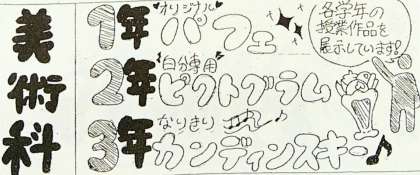 美術科
オリジナル
1年 パフェ
自分専用
2年 ピクトグラム
なりきり
3年 カンディンスキー
各学年の
授業作品を
展示しています!